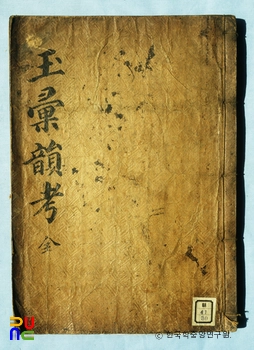 玉彙韻考 全
© 한국학중앙연구원.